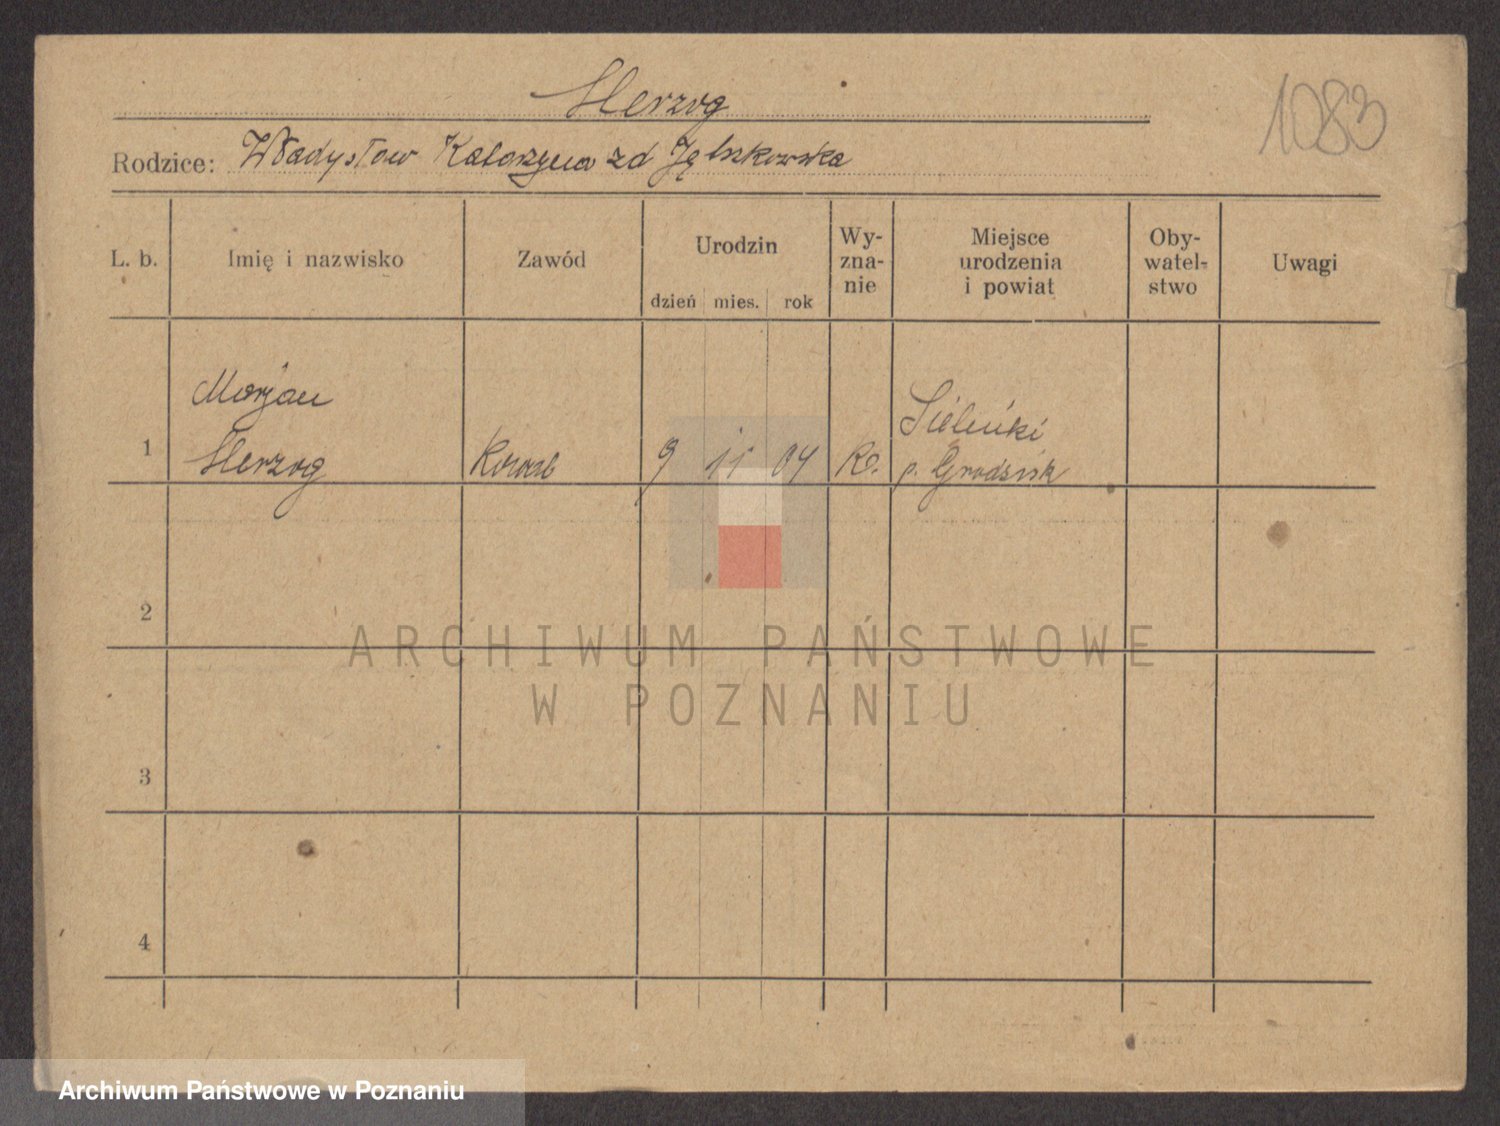 1083
Herzog
Rodzice: Władysław Katarzyna zd
L. b.
Imię i nazwisko
Zawód
Urodzin
dzień mies. rok
Wy-
zna-
nie
Miejsce
urodzenia
i powiat
Oby-
watel-
stwo
Uwagi
1
Marjan
Herzog
9 11 04
Sielinki
p. Grodzisk
2
3
4
ARCHIWUM PAŃSTWOWE
W POZNANIU
Archiwum Państwowe w Poznaniu